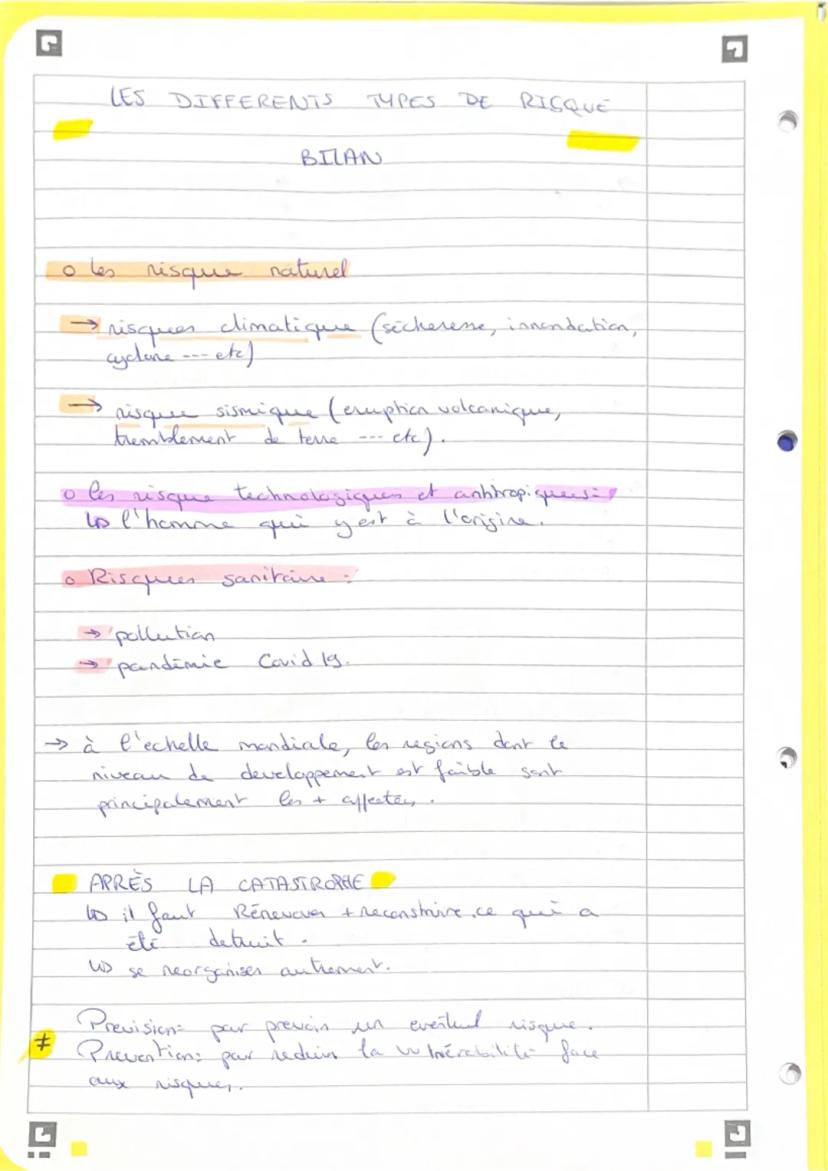 LES DIFFERENTS TYPES DE RISQUE
BILAN
o les risque naturel
→ risques climatique (sécheresse, innondation,
cyclone --- etc)
→ risque sismique (eruption volcanique,
tremblement de terre --- etc).
o les risque technologiques et anhtropiques:
↳ l'homme qui y est à l'origine.
o Risques sanitaire :
→ pollution
→ pandémie Covid 19.
→ à l'echelle mondiale, les regions dont le
niveau de developpement est faible sont
principalement les + affectes.
APRÈS LA CATASTROPHE
↳ il faut + reconstruire ce qui a
été detruit.
↳ se reorganiser autrement.
Prevision: pour prevoir un eventuel risque.
≠
Prevention: pour reduire la vulnérabilité face
aux risques.